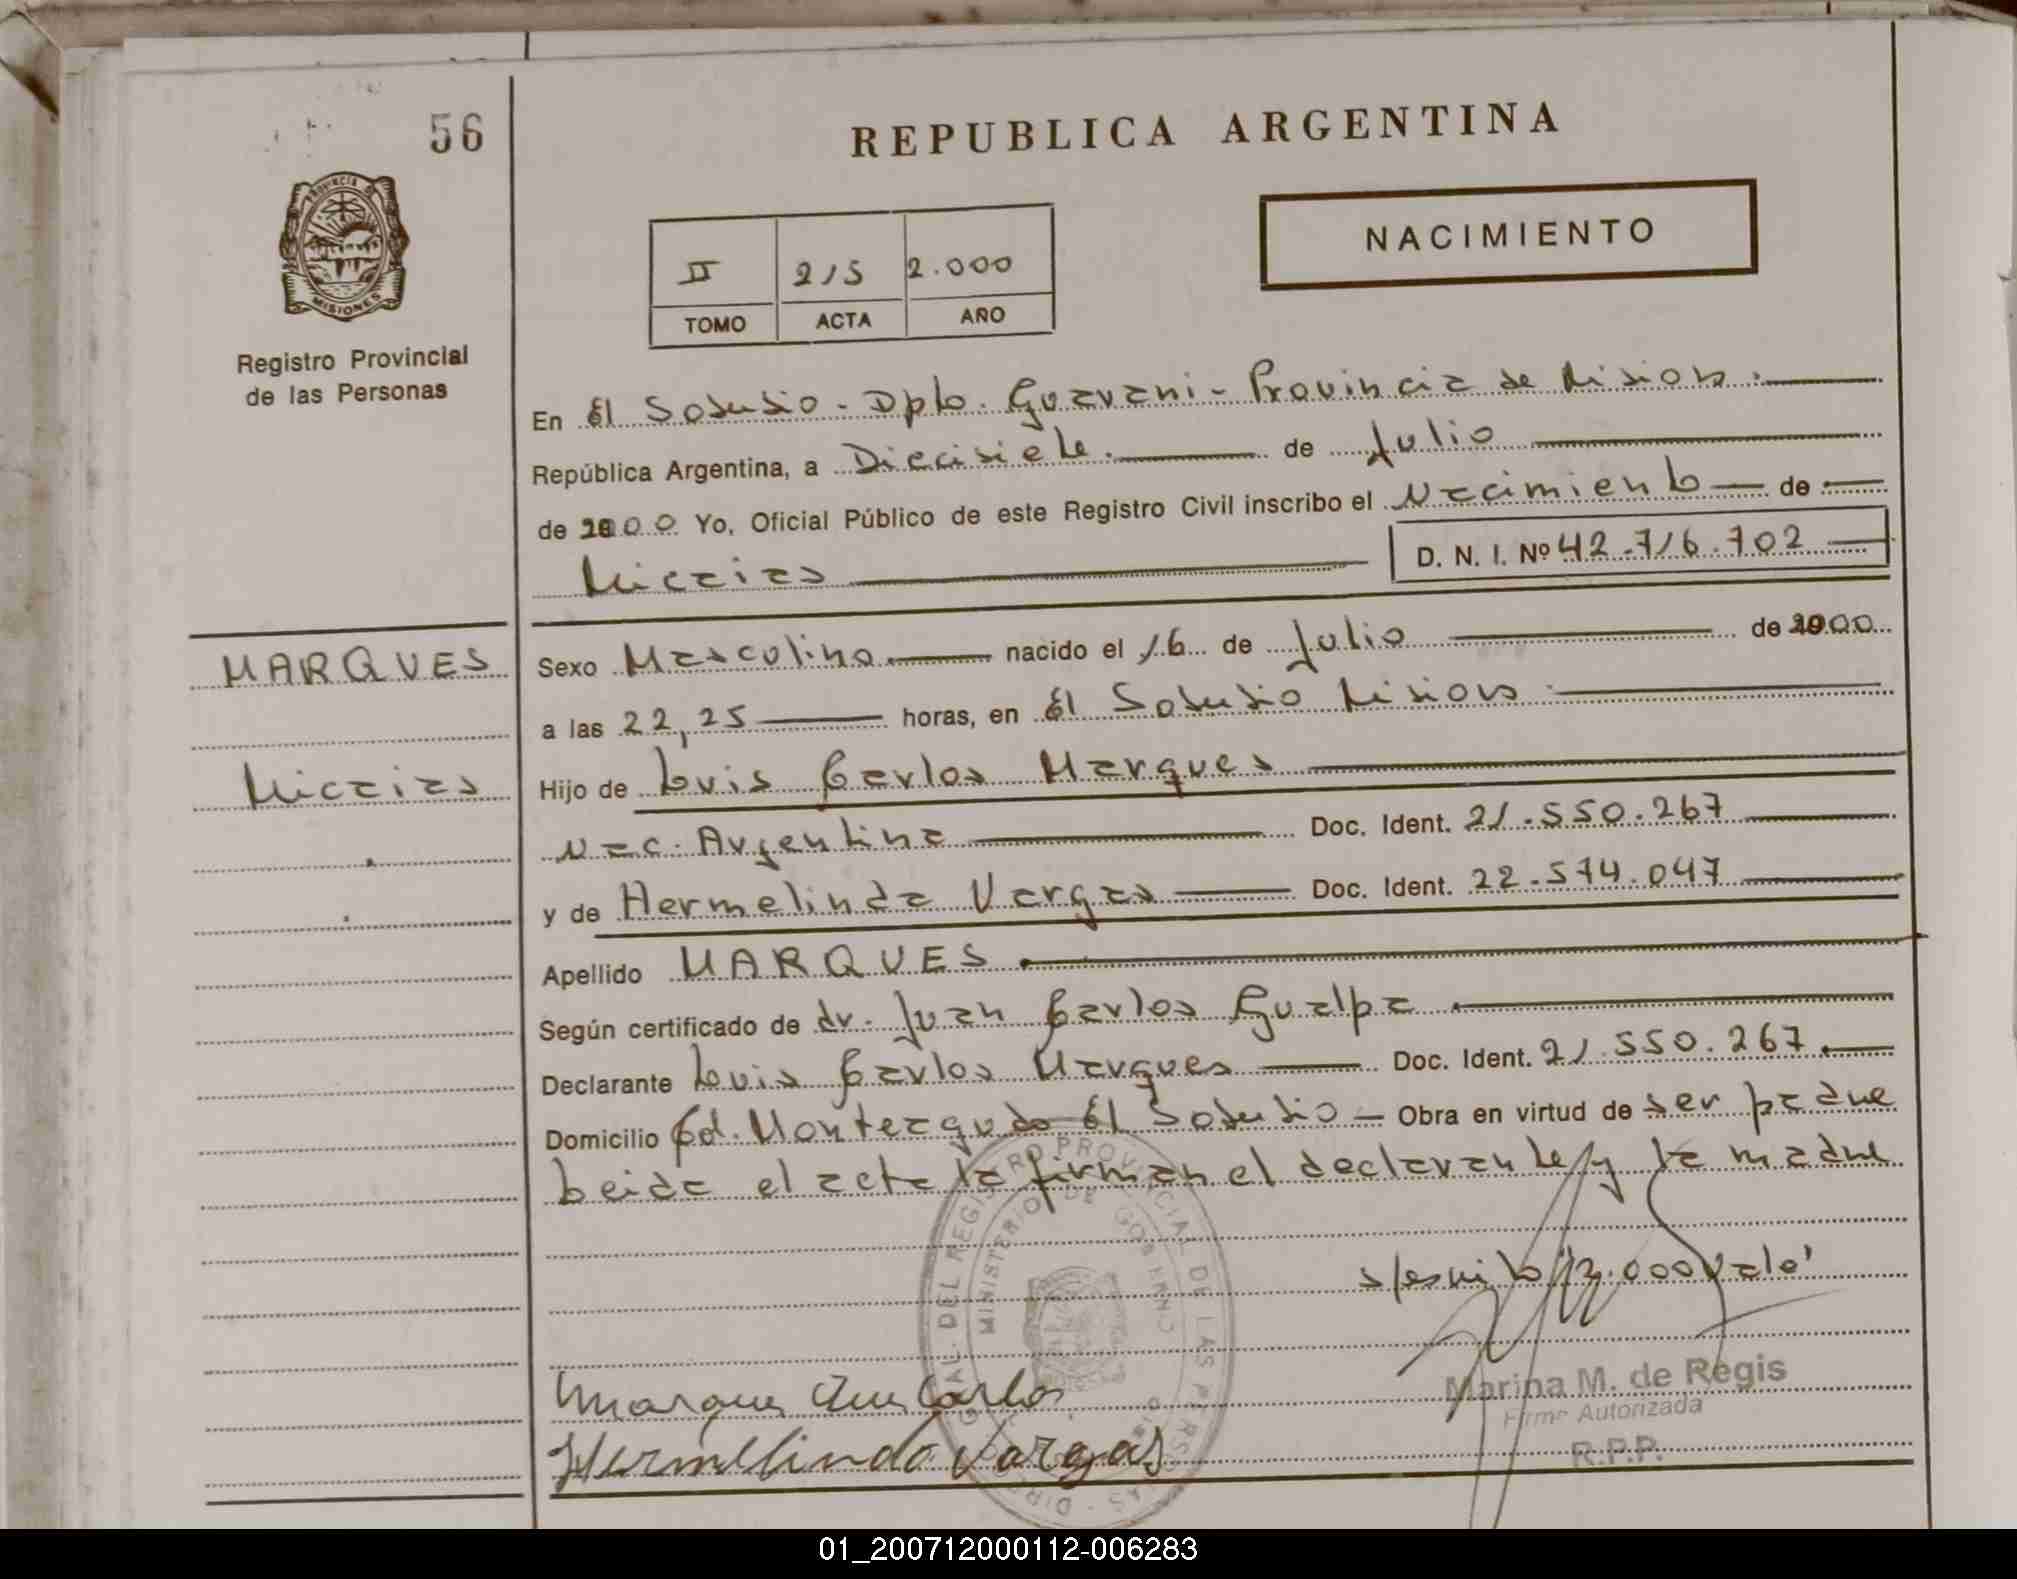 56
REPUBLICA ARGENTINA
PROVINCIA DE
MISIONES
Registro Provincial
de las Personas
NACIMIENTO
II 215 2.000
TOMO ACTA AÑO
En El Soberbio - Dpto. Guarani - Provincia de Misiones.
República Argentina, a Diecisiete. de Julio
de 2000 Yo, Oficial Público de este Registro Civil inscribo el Nacimiento de
Micaias D. N. I. Nº 42.716.702
MARQUES
Sexo Masculino. nacido el 16 de Julio de 2000
a las 22,25 horas, en El Soberbio Misiones.
Micaias
Hijo de Luis Carlos Marques
Nac. Argentina Doc. Ident. 21.550.267
y de Hermelinda Vargas Doc. Ident. 22.574.047
Apellido MARQUES.
Según certificado de dr. Juan Carlos Gualpa.
Declarante Luis Carlos Marques Doc. Ident. 21.550.267.
Domicilio Cd. Monteagudo El Soberbio - Obra en virtud de ser padre
Leida el acta la firman el declarante y la madre
s/escrito "2.000 Vale"
Marques Luis Carlos
Hermelinda Vargas
Marina M. de Regis
Firma Autorizada
R.P.P.
REGISTRO PROVINCIAL DE LAS PERSONAS
MINISTERIO DE GOBIERNO
01_200712000112-006283